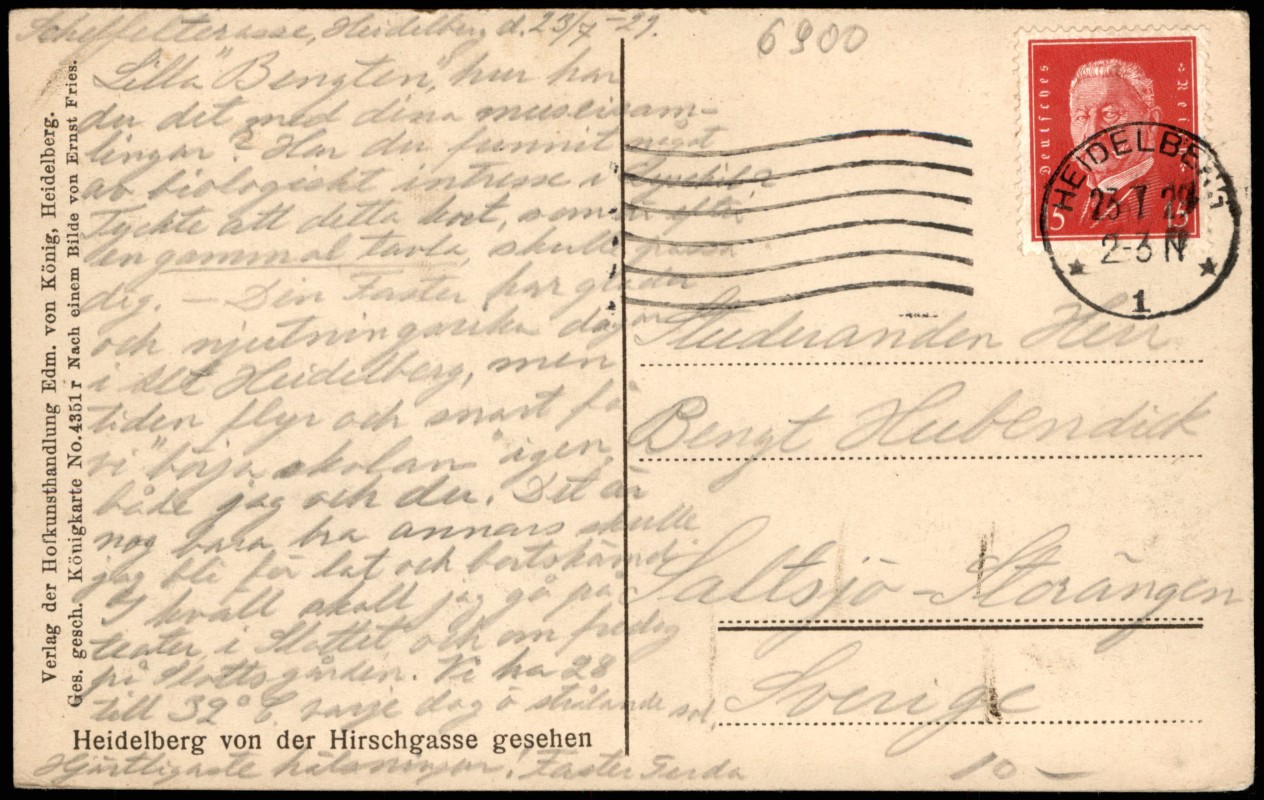 Scheffelterasse, Heidelberg d. 23/7 -29.
Lilla "Bengten", hur har
du det med dina museisam-
lingar? Har du funnit något
av biologiskt intresse i
Tyckte att detta kort, som är efter
en gammal tavla, skulle
dig. — Din Faster har glada
och njutningsrika dagar
i det Heidelberg, men
tiden flyr och snart få
vi "börja skolan" igen,
både jag och du. Det är
nog bara bra annars skulle
jag bli för lat och bortskämd.
I kväll skall jag gå på
teater i Slottet och on fredag
på Slottsgården. Vi ha 28
till 32° C varje dag o strålande sol.
Hjärtligaste hälsningar! Faster Gerda
6900
Deutsches Reich
5 5
HEIDELBERG
23 7 29
2-3 N
1
Studeranden Herr
Bengt Hubendick
Saltsjö-Storängen
Sverige
10 —
Verlag der Hofkunsthandlung Edm. von König, Heidelberg.
Ges. gesch. Königkarte No. 4351 r Nach einem Bilde von Ernst Fries.
Heidelberg von der Hirschgasse gesehen